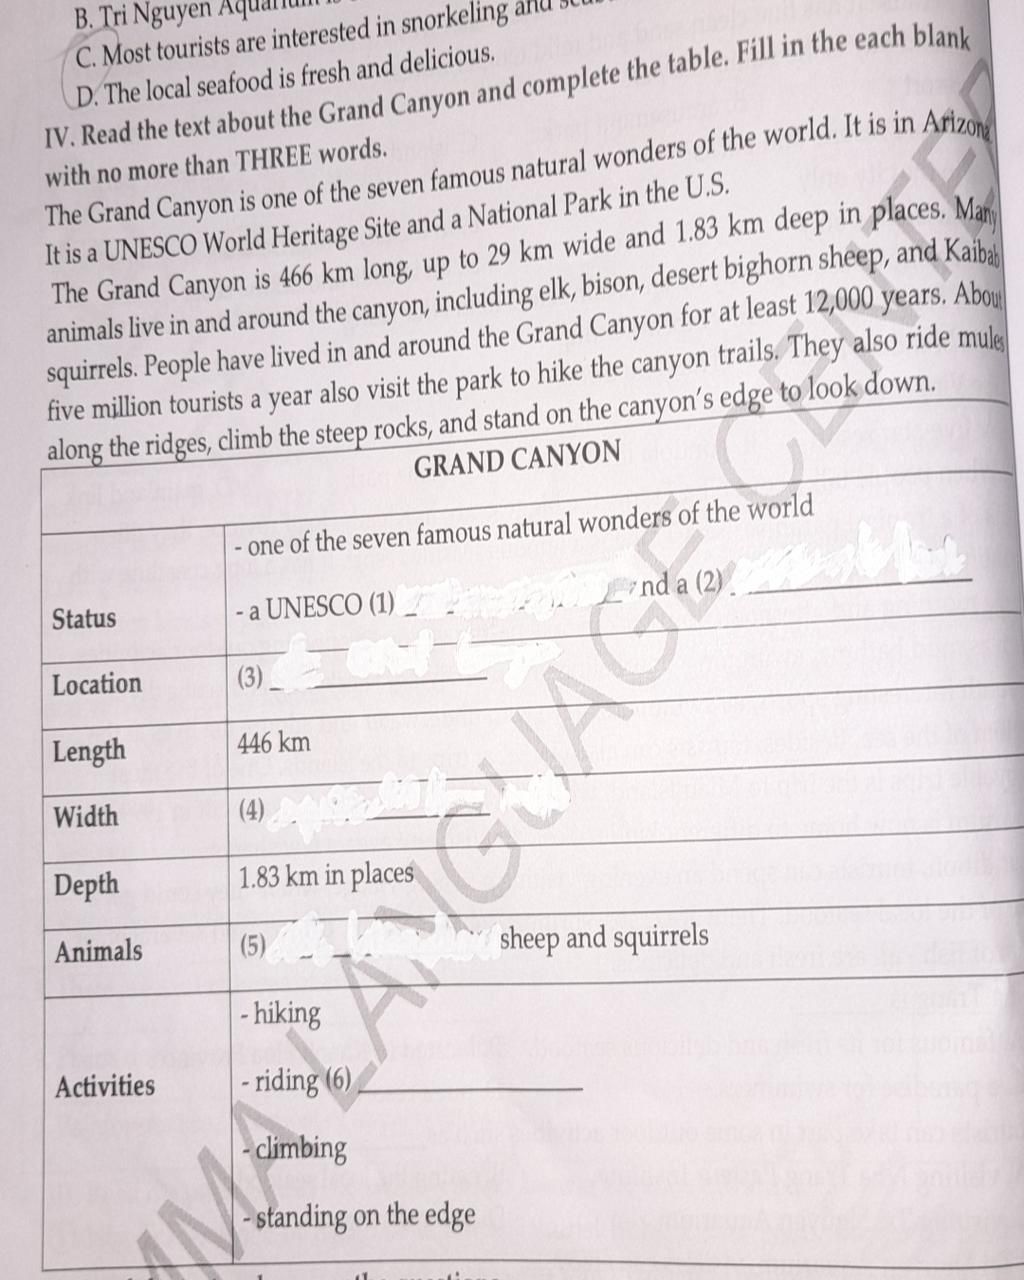 B. Tri Nguyen Aquarium is
C. Most tourists are interested in snorkeling and
D. The local seafood is fresh and delicious.
IV. Read the text about the Grand Canyon and complete the table. Fill in the each blank
with no more than THREE words.
The Grand Canyon is one of the seven famous natural wonders of the world. It is in Arizona
It is a UNESCO World Heritage Site and a National Park in the U.S.
The Grand Canyon is 466 km long, up to 29 km wide and 1.83 km deep in places. Many
animals live in and around the canyon, including elk, bison, desert bighorn sheep, and Kaibab
squirrels. People have lived in and around the Grand Canyon for at least 12,000 years. About
five million tourists a year also visit the park to hike the canyon trails. They also ride mules
along the ridges, climb the steep rocks, and stand on the canyon's edge to look down.
GRAND CANYON
Status
- one of the seven famous natural wonders of the world
- a UNESCO (1) nd a (2)
Location (3)
Length 446 km
Width (4)
Depth 1.83 km in places
Animals (5) sheep and squirrels
Activities
- hiking
- riding (6)
- climbing
- standing on the edge
MA LANGUAGE CENTER